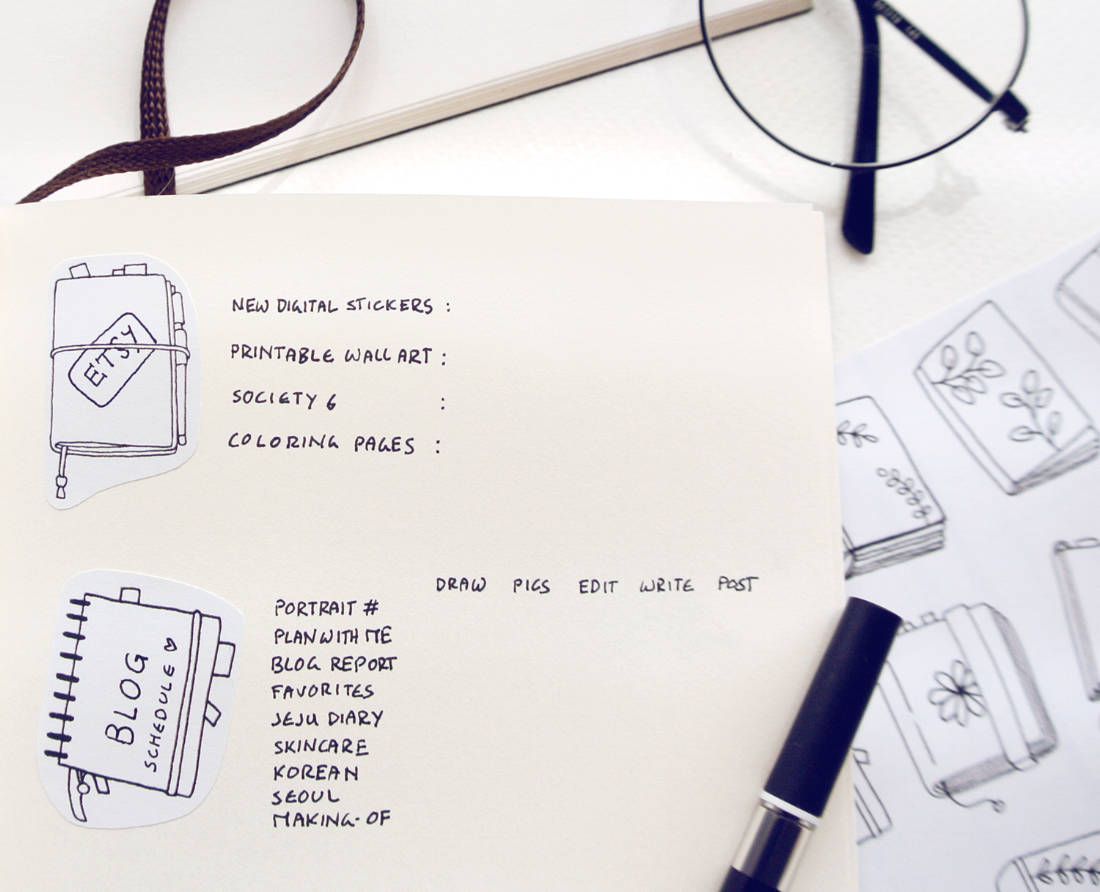 ETSY
NEW DIGITAL STICKERS :
PRINTABLE WALL ART :
SOCIETY 6 :
COLORING PAGES :
BLOG
SCHEDULE
DRAW PICS EDIT WRITE POST
PORTRAIT #
PLAN WITH ME
BLOG REPORT
FAVORITES
JEJU DIARY
SKINCARE
KOREAN
SEOUL
MAKING-OF